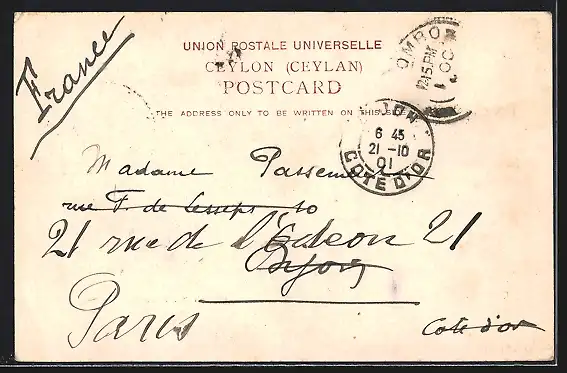 France
UNION POSTALE UNIVERSELLE
CEYLON (CEYLAN)
POSTCARD
THE ADDRESS ONLY TO BE WRITTEN ON THIS SIDE
OMBO
12.15 PM
OC
6 45
21 -10
01
COTE D'OR
Madame
rue F. de Lesseps 10
21 rue de l'Odeon 21
Dijon
Paris
Cote d'or